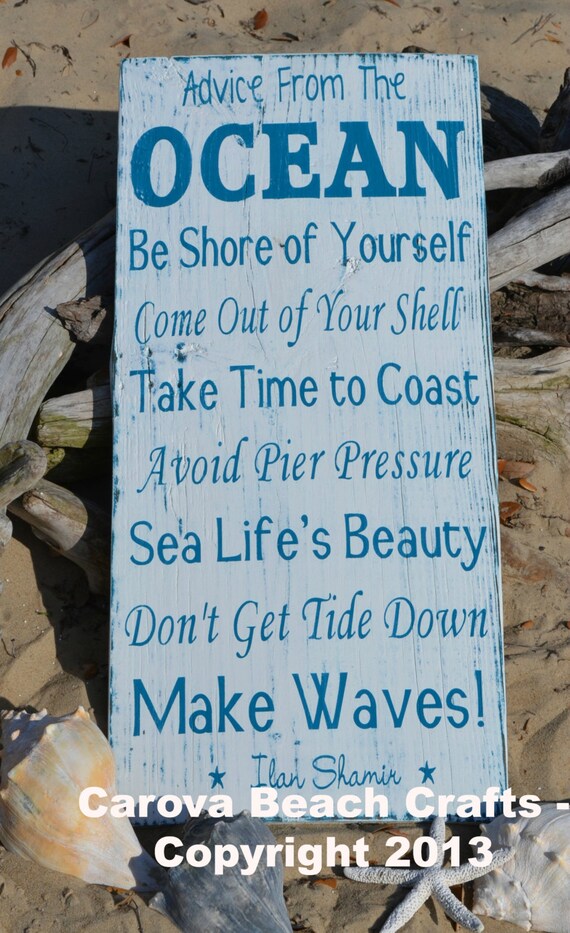 Advice From The
OCEAN
Be Shore of Yourself
Come Out of Your Shell
Take Time to Coast
Avoid Pier Pressure
Sea Life's Beauty
Don't Get Tide Down
Make Waves!
Ilan Shamir
Carova Beach Crafts -
Copyright 2013